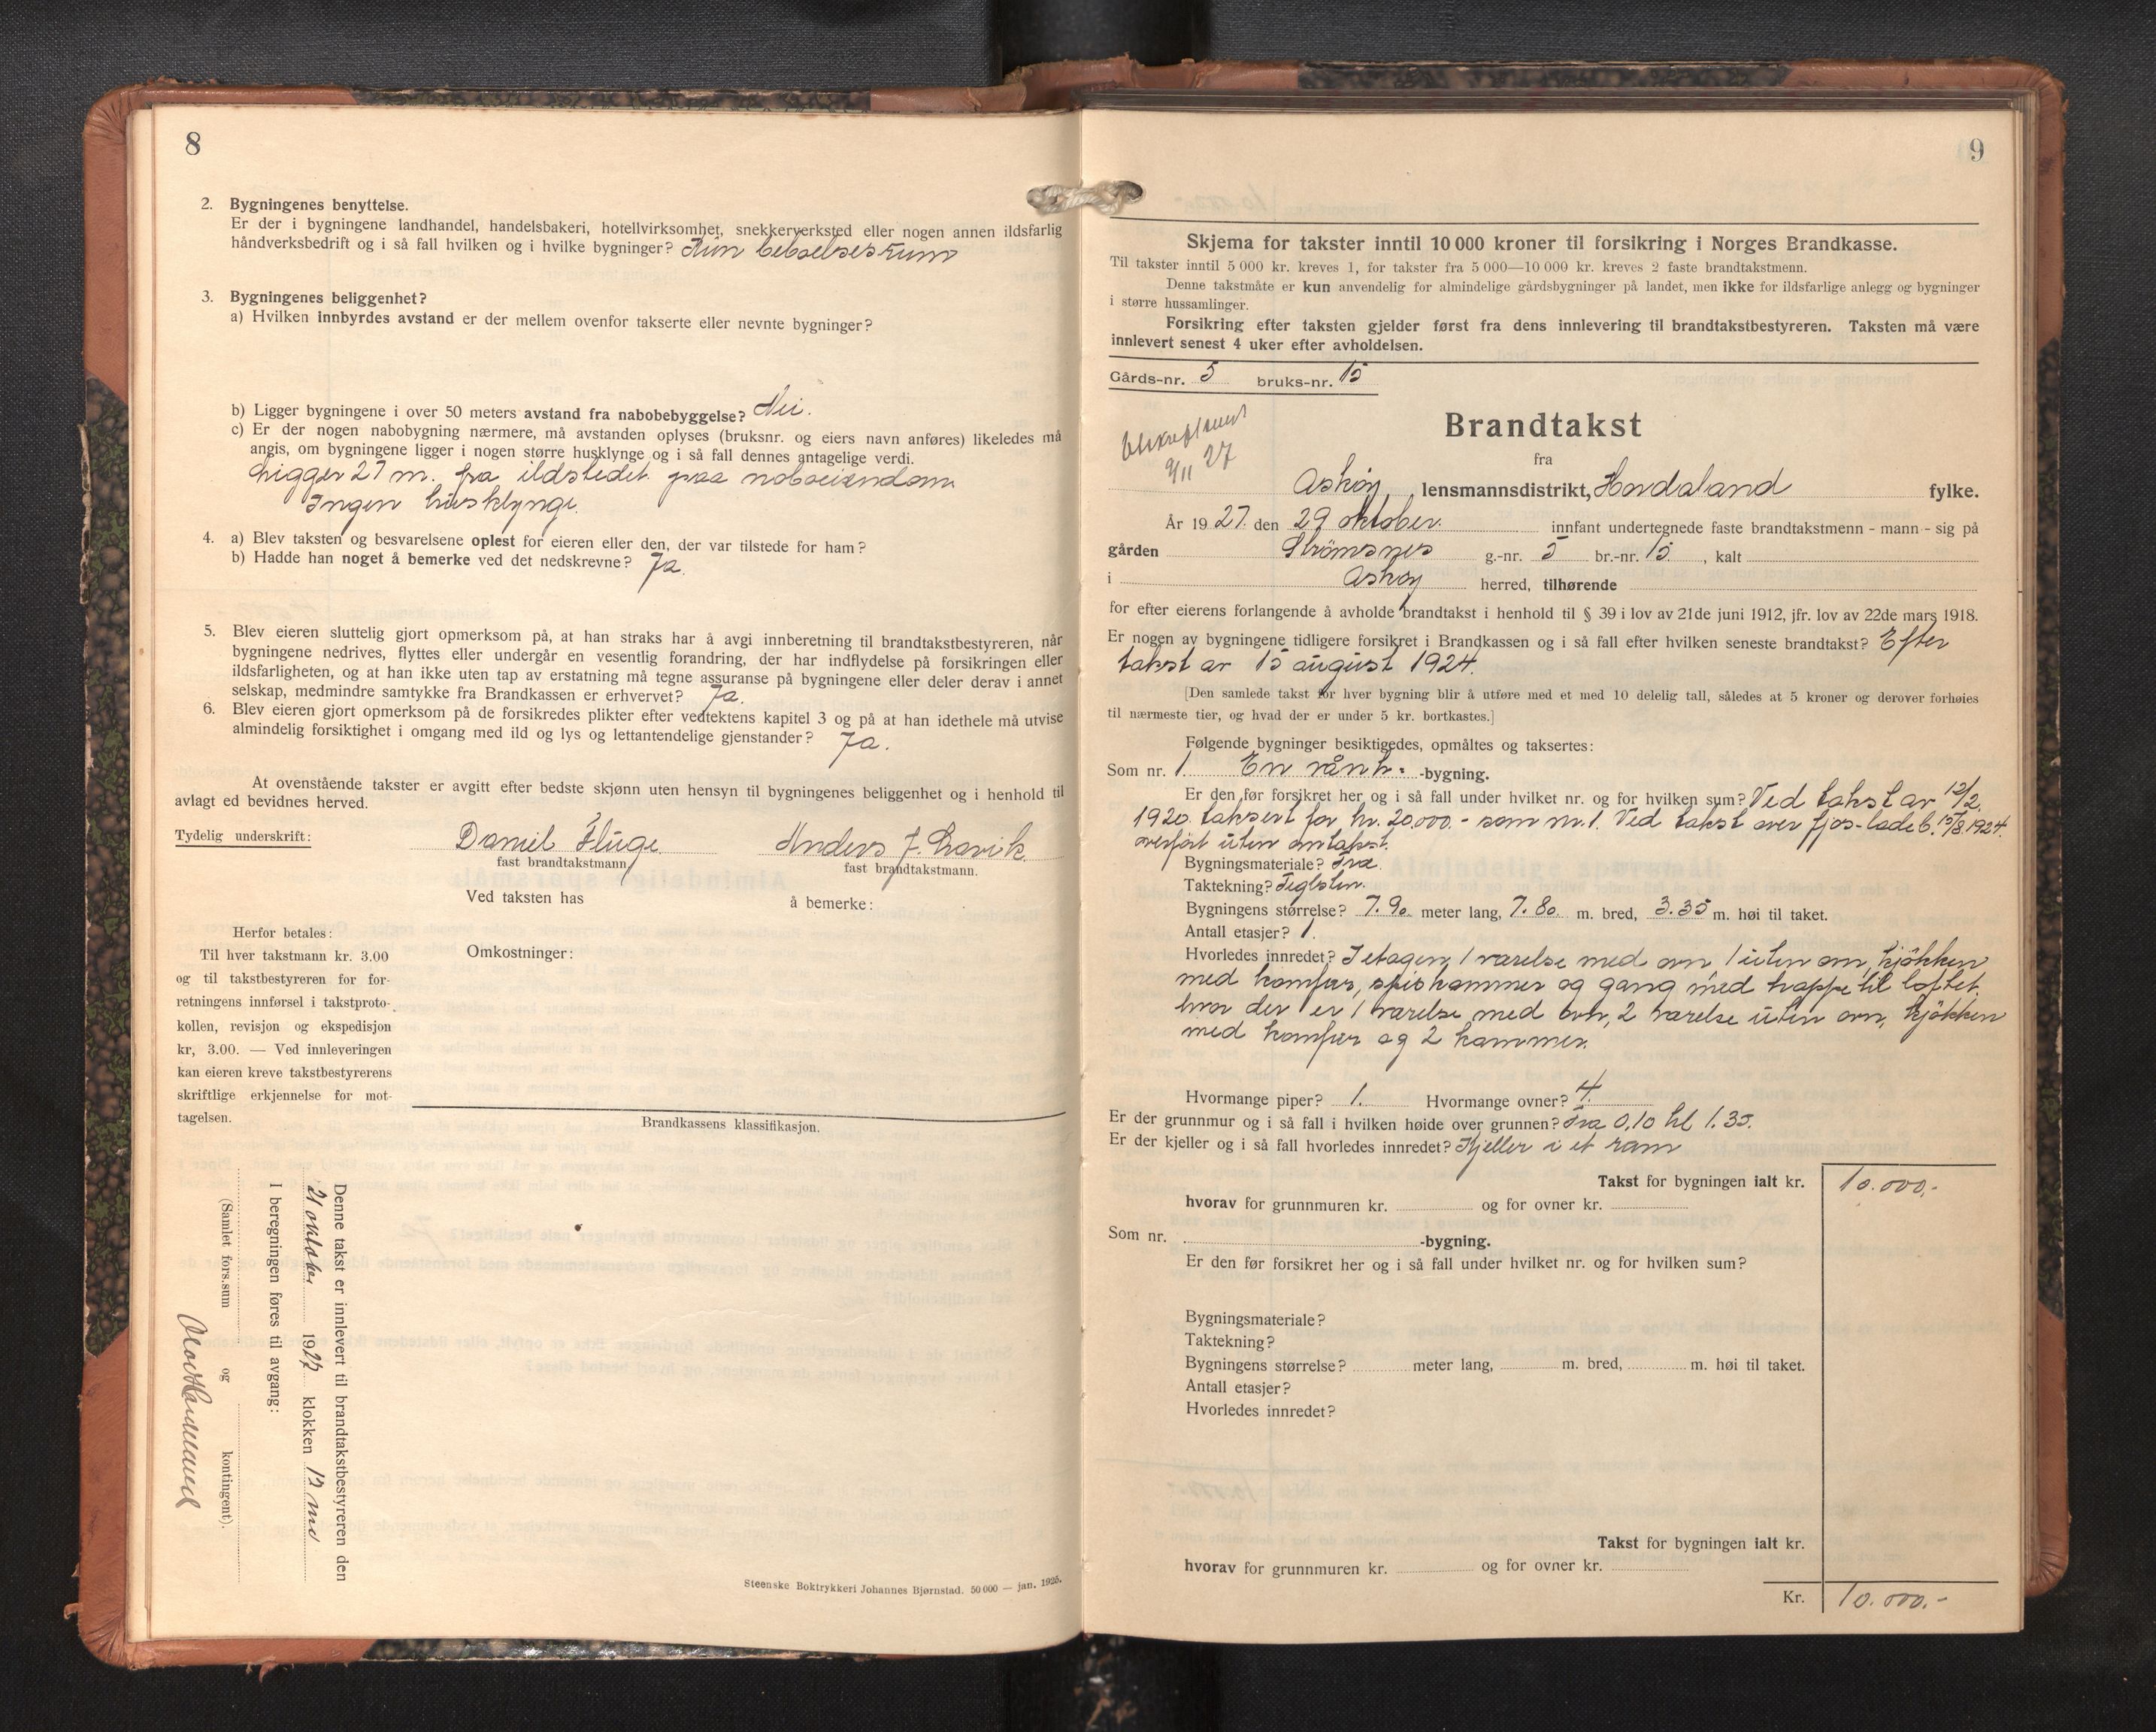 8
2. Bygningenes benyttelse.
Er der i bygningene landhandel, handelsbakeri, hotellvirksomhet, snekkerverksted eller nogen annen ildsfarlig
håndverksbedrift og i så fall hvilken og i hvilke bygninger? Kun beboelsesrum
3. Bygningenes beliggenhet?
a) Hvilken innbyrdes avstand er der mellem ovenfor takserte eller nevnte bygninger?
b) Ligger bygningene i over 50 meters avstand fra nabobebyggelse? Nei.
c) Er der nogen nabobygning nærmere, må avstanden oplyses (bruksnr. og eiers navn anføres) likeledes må
angis, om bygningene ligger i nogen større husklynge og i så fall dennes antagelige verdi.
Ligger 27 m. fra ildstedet paa naboeiendom.
Ingen husklynge.
4. a) Blev taksten og besvarelsene oplest for eieren eller den, der var tilstede for ham?
b) Hadde han noget å bemerke ved det nedskrevne? Ja.
5. Blev eieren sluttelig gjort opmerksom på, at han straks har å avgi innberetning til brandtakstbestyreren, når
bygningene nedrives, flyttes eller undergår en vesentlig forandring, der har indflydelse på forsikringen eller
ildsfarligheten, og at han ikke uten tap av erstatning må tegne assuranse på bygningene eller deler derav i annet
selskap, medmindre samtykke fra Brandkassen er erhvervet? Ja.
6. Blev eieren gjort opmerksom på de forsikredes plikter efter vedtektens kapitel 3 og på at han idethele må utvise
almindelig forsiktighet i omgang med ild og lys og lettantendelige gjenstander? Ja.
At ovenstående takster er avgitt efter bedste skjønn uten hensyn til bygningenes beliggenhet og i henhold til
avlagt ed bevidnes herved.
Tydelig underskrift: Daniel Fluge Anders J. Lavik
fast brandtakstmann fast brandtakstmann.
Ved taksten has å bemerke:
Omkostninger:
Herfor betales:
Til hver takstmann kr. 3.00
og til takstbestyreren for for-
retningens innførsel i takstproto-
kollen, revisjon og ekspedisjon
kr, 3.00. — Ved innleveringen
kan eieren kreve takstbestyrerens
skriftlige erkjennelse for mot-
tagelsen.
Brandkassens klassifikasjon.
Denne takst er innlevert til brandtakstbestyreren den
21 oktober 1927 klokken 12 md
I beregningen føres til avgang:
(Samlet fors.sum og kontingent).
Steenske Boktrykkeri Johannes Bjørnstad. 50 000 — jan. 1925.
9
Skjema for takster inntil 10 000 kroner til forsikring i Norges Brandkasse.
Til takster inntil 5 000 kr. kreves 1, for takster fra 5 000—10 000 kr. kreves 2 faste brandtakstmenn.
Denne takstmåte er kun anvendelig for almindelige gårdsbygninger på landet, men ikke for ildsfarlige anlegg og bygninger
i større hussamlinger.
Forsikring efter taksten gjelder først fra dens innlevering til brandtakstbestyreren. Taksten må være
innlevert senest 4 uker efter avholdelsen.
Gårds-nr. 5 bruks-nr. 15
Brandtakst
9/11 27
fra
Askøy lensmannsdistrikt, Hordaland fylke.
År 1927 den 29 oktober innfant undertegnede faste brandtakstmenn - mann - sig på
gården Strømsnes g.-nr. 5 br.-nr. 15, kalt
i Askøy herred, tilhørende
for efter eierens forlangende å avholde brandtakst i henhold til § 39 i lov av 21de juni 1912, jfr. lov av 22de mars 1918.
Er nogen av bygningene tidligere forsikret i Brandkassen og i så fall efter hvilken seneste brandtakst? Efter
takst av 15 august 1924.
[Den samlede takst for hver bygning blir å utføre med et med 10 delelig tall, således at 5 kroner og derover forhøies
til nærmeste tier, og hvad der er under 5 kr. bortkastes.]
Følgende bygninger besiktigedes, opmåltes og taksertes:
Som nr. 1. En vånh. -bygning.
Er den før forsikret her og i så fall under hvilket nr. og for hvilken sum? Ved takst av 12/2
1920 taksert for kr. 20.000.- som nr. 1. Ved takst over fjøs-ladeb. 15/8 1924
overført uten omtakst.
Bygningsmateriale? Træ.
Taktekning? Teglsten.
Bygningens størrelse? 7.90 meter lang, 7.80 m. bred, 3.35 m. høi til taket.
Antall etasjer? 1.
Hvorledes innredet? I etagen, 1 værelse med ovn, 1 uten ovn, kjøkken
med komfur, spiskammer og gang med trappe til loftet,
hvor der er 1 værelse med ovn, 2 værelse uten ovn, kjøkken
med komfur og 2 kammer.
Hvormange piper? 1. Hvormange ovner? 4.
Er der grunnmur og i så fall i hvilken høide over grunnen? Fra 0,10 til 1.35.
Er der kjeller og i så fall hvorledes innredet? Kjeller i et rum
Takst for bygningen ialt kr. 10.000,-
hvorav for grunnmuren kr. og for ovner kr.
Som nr. -bygning.
Er den før forsikret her og i så fall under hvilket nr. og for hvilken sum?
Bygningsmateriale?
Taktekning?
Bygningens størrelse? meter lang, m. bred, m. høi til taket.
Antall etasjer?
Hvorledes innredet?
Takst for bygningen ialt kr.
hvorav for grunnmuren kr. og for ovner kr.
Kr. 10.000.-